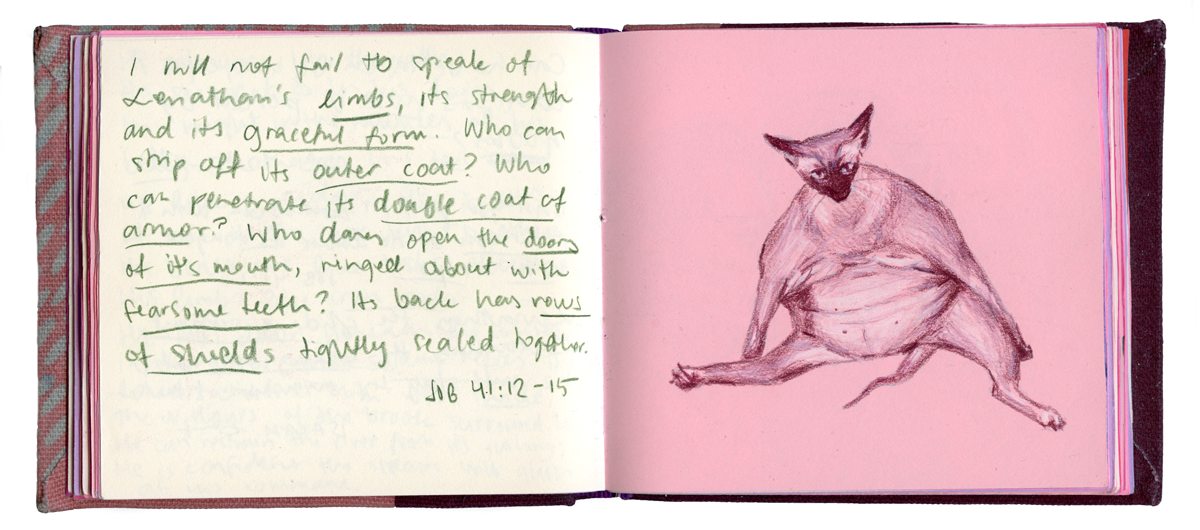 I will not fail to speak of
Leviathan's limbs, its strength
and its graceful form. Who can
strip off its outer coat? Who
can penetrate its double coat of
armor? Who dares open the doors
of it's mouth, ringed about with
fearsome teeth? Its back has rows
of shields tightly sealed together.
JOB 41:12-15